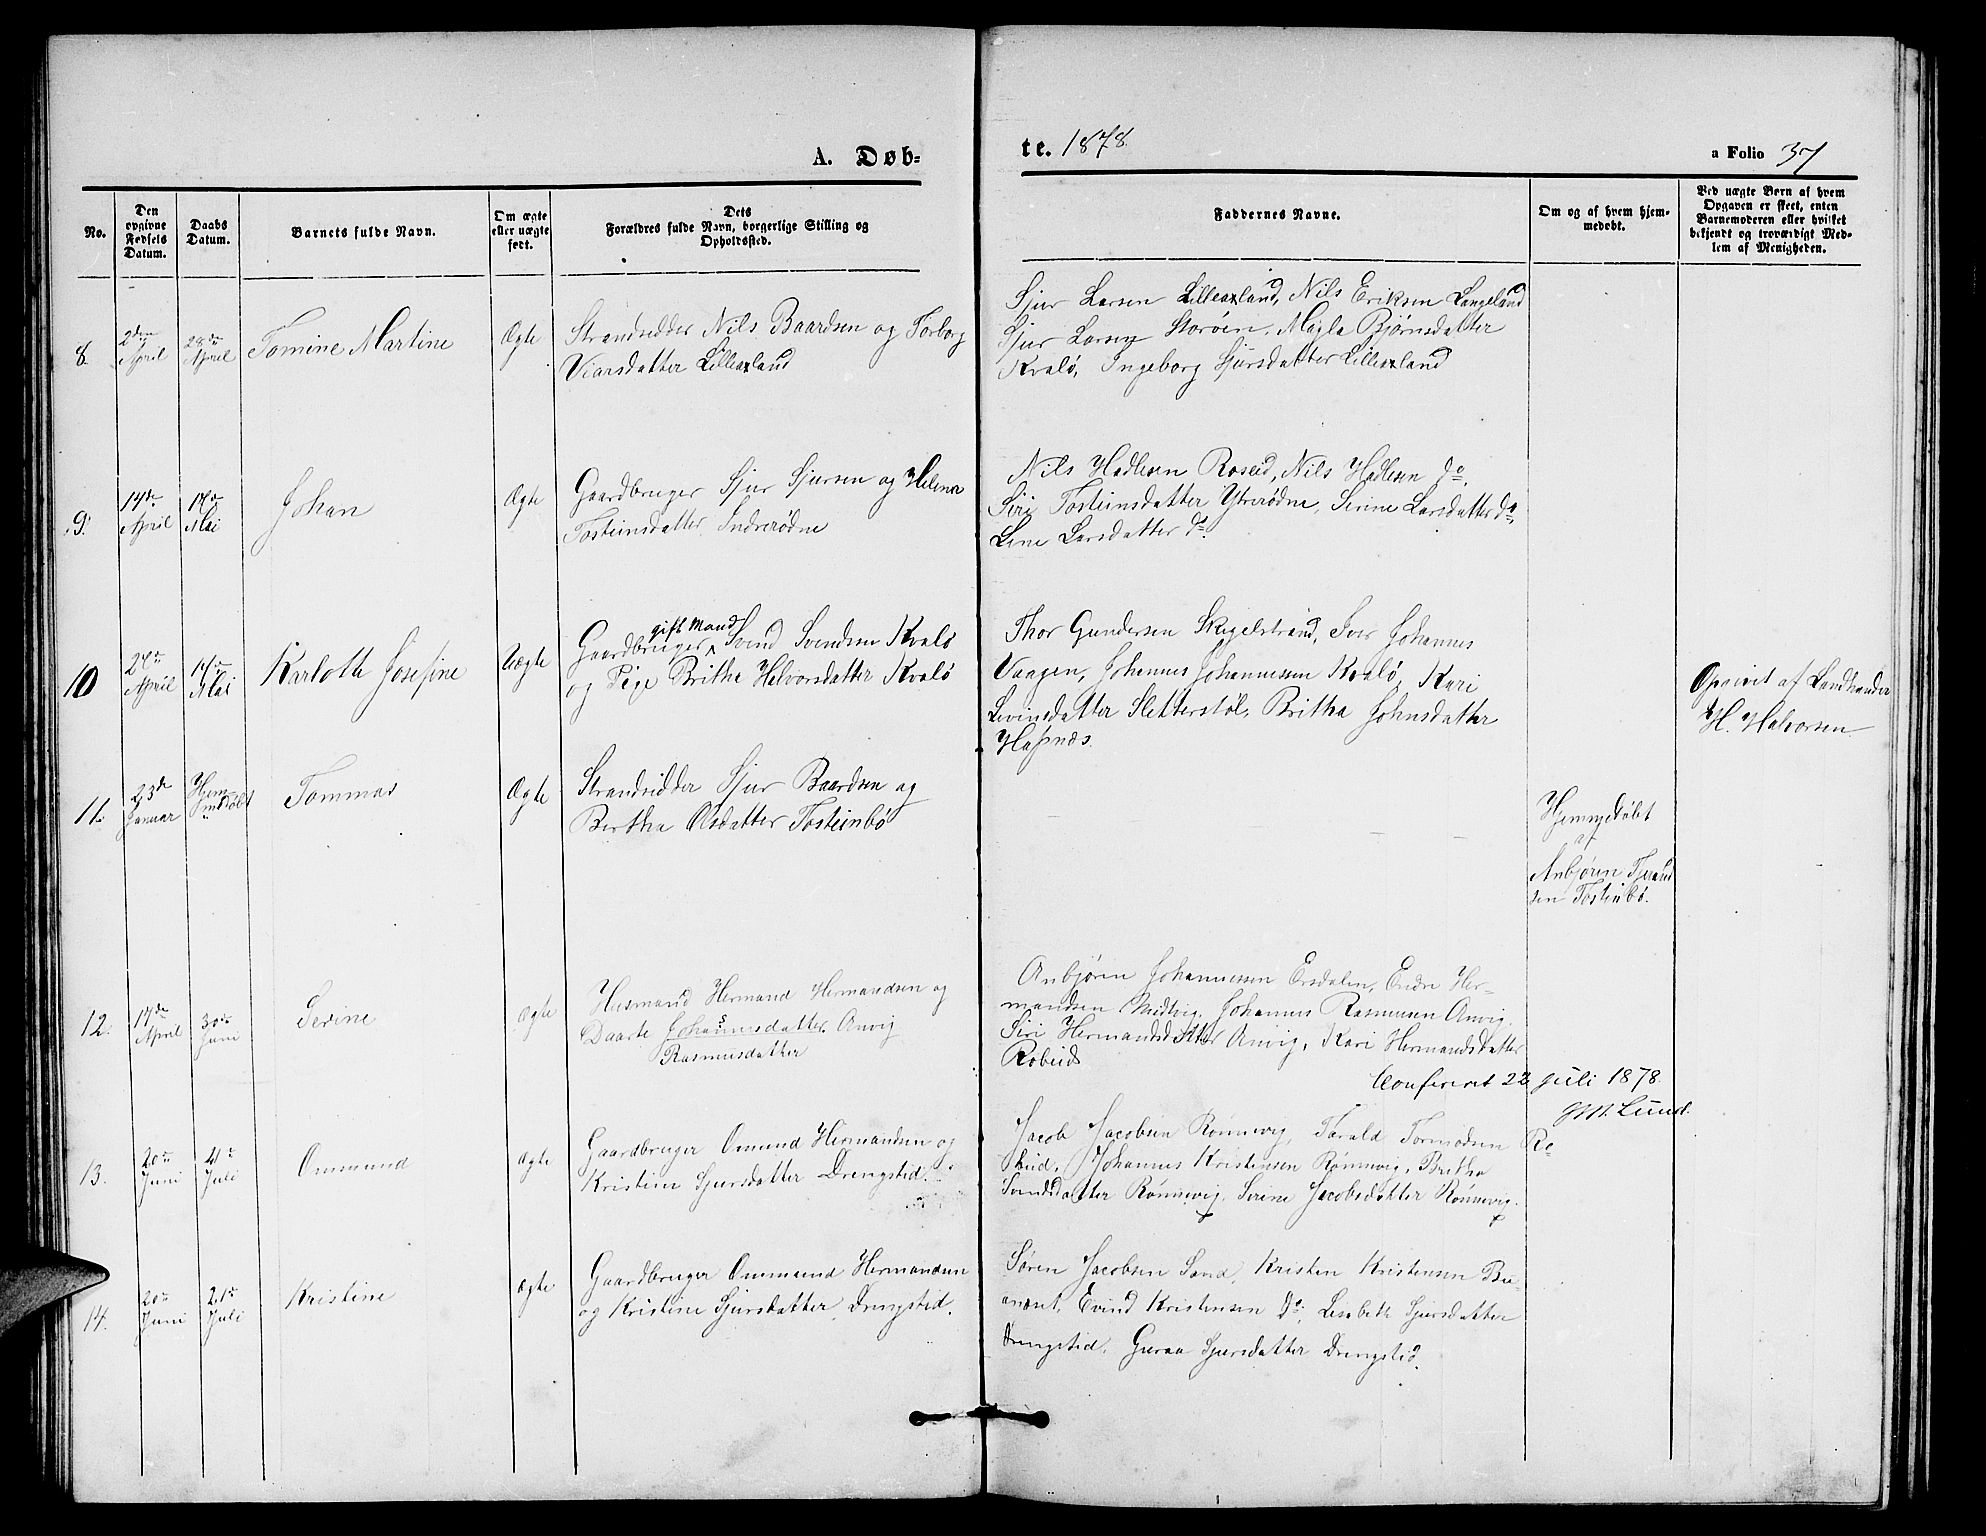 A. Døb-
te. 1878.
a Folio 37
No.
Den
opgivne
Fødsels
Datum.
Daabs
Datum.
Barnets fulde Navn.
Om ægte
eller uægte
født.
Dets
Forældres fulde Navn, borgerlige Stilling og
Opholdssted.
Faddernes Navne.
Om og af hvem hjem-
medøbt.
Ved uægte Børn af hvem
Opgaven er skeet, enten
Barnemoderen eller hvilket
bekjendt og troværdigt Med-
lem af Menigheden.
8.
2den
April
28de
April
Tomine Martine
Ægte
Strandsidder Nils Baardsen og Torborg
Viarsdatter Lilleaxland
Sjur Larsen Lilleaxland, Nils Eriksen Langeland
Sjur Larsen Storøen, Magla Bjørnsdatter
Kvalø, Ingeborg Sjursdatter Lilleaxland
9.
14de
April
17de
Mai
Johan
Ægte
Gaardbruger Sjur Sjursen og Helena
Tosteinsdatter Indrerødne
Nils Hadlesen Roseid, Nils Hadlesen do,
Siri Tosteinsdatter Ytrerødne, Serine Larsdatter do,
Lene Larsdatter do.
10
24de
April
17de
Mai
Karlotte Josefine
Uægte
gift Mand
Gaardbruger Svend Svendsen Kvalø
og Pige Britha Halvorsdatter Kvalø
Thor Gundersen Skjelstrand, Iver Johannes
Vaagen, Johannes Johannessen Kvalø, Kari
Levinsdatter Sletterstøl, Britha Johnsdatter
Hapnæs.
Opgivet af Landhandler
H. Halvorsen
11.
23de
Januar
Hjem-
medøbt
Tommas
Ægte
Strandsidder Sjur Baardsen og
Bertha Olsdatter Tosteinbø
Hjemmedøbt
af
Anbjøren Tjerand
sen Tosteinbø.
12.
17de
April
30de
Juni
Serine
Ægte
Husmand Hermand Hermandsen og
Daarte Johannesdatter Anvig
Rasmusdatter
Anbjøren Johannessen Ersdalen, Endre Her-
mandsen Midtvig, Johannes Rasmussen Anvig.
Siri Hermandsdatter Anvig, Kari Hermandsdatter
Røbeids
Confereret 22 Juli 1878.
Lund.
13.
20de
Juni
21de
Juli
Ommund
Ægte
Gaardbruger Omund Hermandsen og
Kristine Sjursdatter Drengstid.
Jacob Jacobsen Rønnevig, Tarald Tormodsen Rø-
beid, Johannes Kristensen Rønnevig, Britha
Svendsdatter Rønnevig, Serine Jacobsdatter Rønnevig.
14.
20de
Juni
21de
Juli
Kristine
Ægte
Gaardbruger Ommund Hermandsen
og Kristine Sjursdatter Drengstid.
Søren Jacobsen Sand, Kristen Kristensen Bu-
andret, Eivind Kristensen do, Lesabeth Sjursdatter
Drengstid, Guraa Sjursdatter Drengstid.